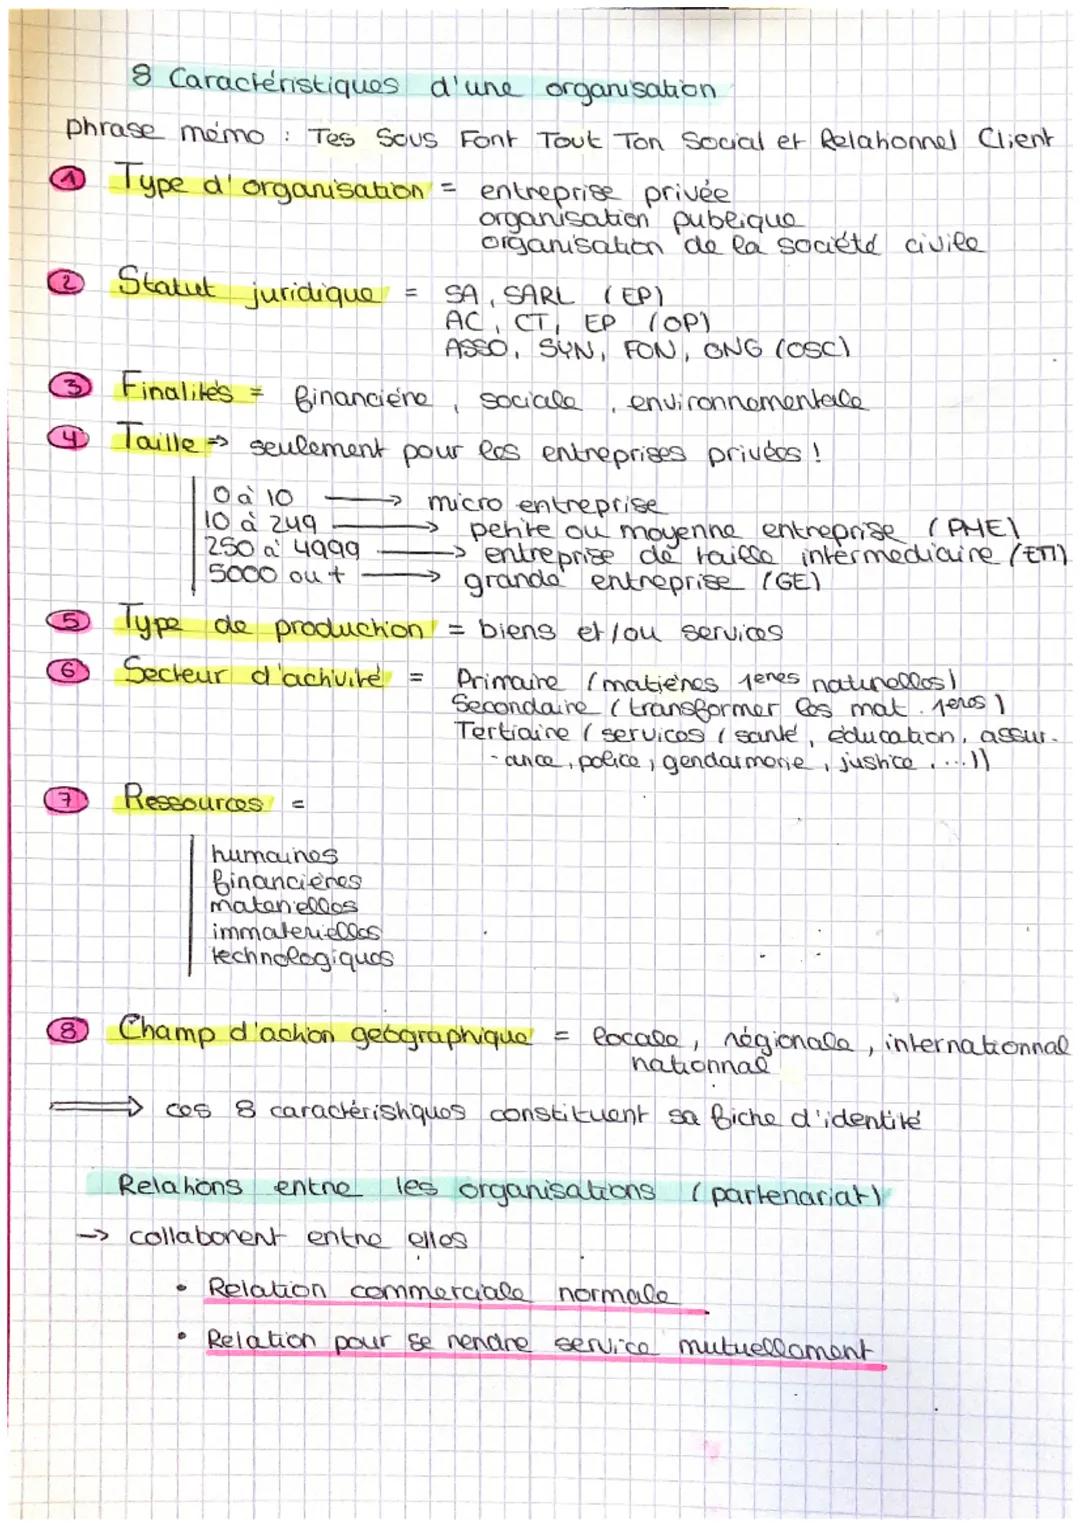 8 Caractéristiques d'une organisation
phrase mémo : Tes Sous Font Tout Ton Social et Relationnel Client
1 Type d'organisation = entreprise privée
organisation publique
organisation de la société civile
2 Statut juridique = SA, SARL (EP)
AC, CT, EP (OP)
ASSO, SYN, FON, ONG (OSC)
3 Finalités = financière, sociale, environnementale
4 Taille => seulement pour les entreprises privées !
0 à 10 → micro entreprise
10 à 249 → petite ou moyenne entreprise (PME)
250 à 4999 → entreprise de taille intermédiaire (ETI)
5000 ou + → grande entreprise (GE)
5 Type de production = biens et/ou services
6 Secteur d'activité = Primaire (matières 1eres naturelles)
Secondaire (transformer les mat. 1eres)
Tertiaire (services (santé, éducation, assur-
-ance, police, gendarmerie, justice, ...))
7 Ressources =
humaines
financières
materielles
immaterielles
technologiques
8 Champ d'action géographique = locale, régionale, internationnal
nationnal
=> ces 8 caractéristiques constituent sa fiche d'identité
Relations entre les organisations (partenariat)
→ collaborent entre elles
• Relation commerciale normale
• Relation pour se rendre service mutuellement